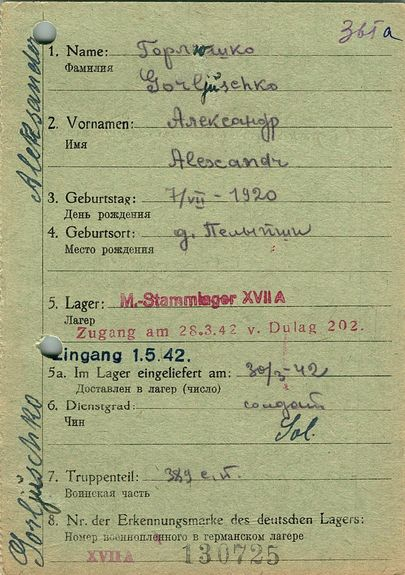 3bfa
1. Name: Горлюшко
Фамилия
Gorljuschko
2. Vornamen: Александр
Имя
Alexandr
3. Geburtstag: 7/VII - 1920
День рождения
4. Geburtsort: д.
Место рождения
5. Lager: M.-Stammlager XVII A
Лагер
Zugang am 28.3.42 v. Dulag 202.
Eingang 1.5.42.
5a. Im Lager eingeliefert am: 30/3-42
Доставлен в лагер (число)
6. Dienstgrad: солдат
Чин
Sol.
7. Truppenteil: 389 с.п.
Воинская часть
8. Nr. der Erkennungsmarke des deutschen Lagers:
Номер военнопленного в германском лагере
XVII A 130725
Gorljuschko Aleksander